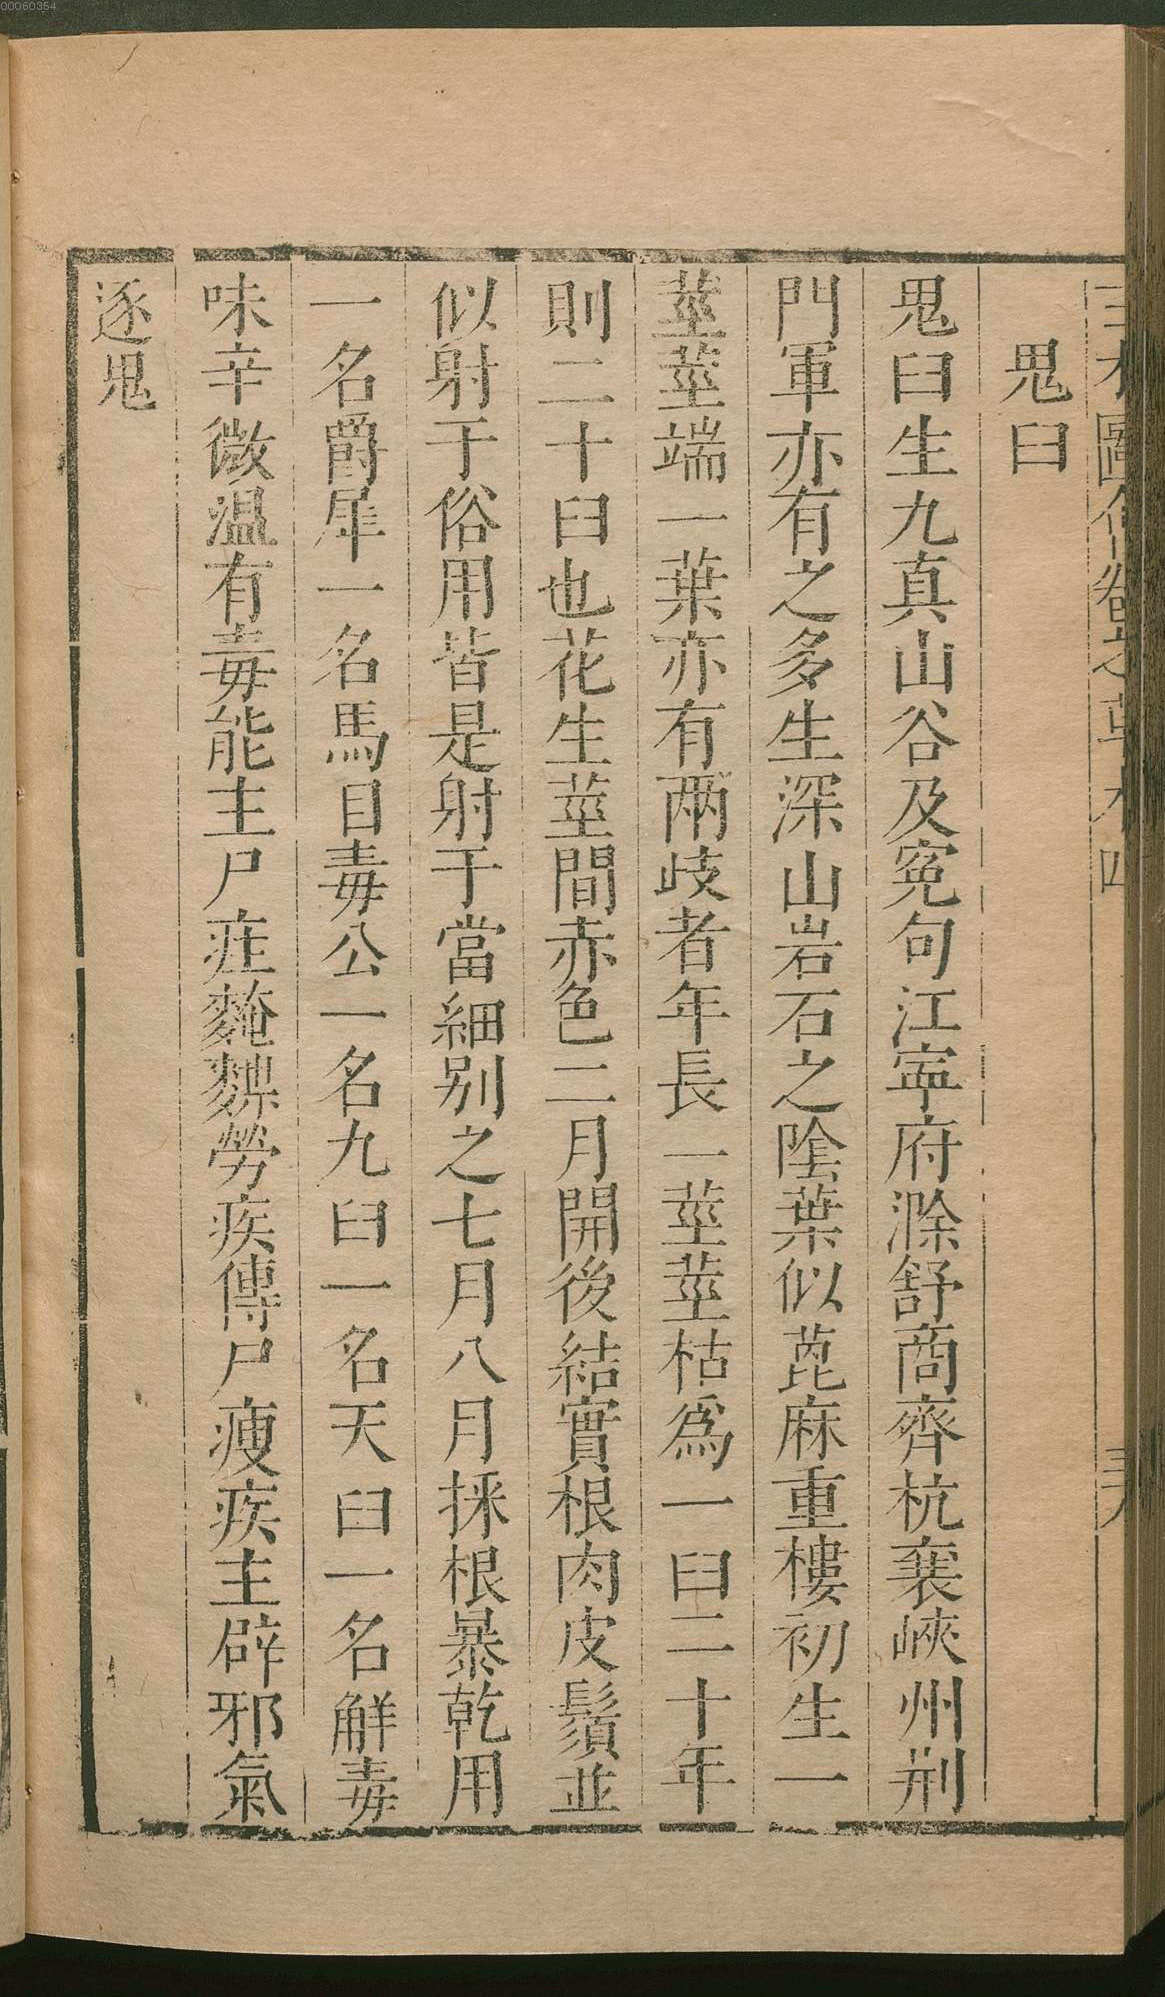 00060354
鬼臼
鬼臼生九真山谷及寃句江寧府滁舒商齊杭襄峽州荆
門軍亦有之多生深山岩石之隂葉似蓖麻重樓初生一
莖莖端一葉亦有兩歧者年長一莖莖枯爲一臼二十年
則二十臼也花生莖間赤色二月開後結實根肉皮鬚並
似射干俗用皆是射干當細别之七月八月採根暴乾用
一名爵犀一名馬目毒公一名九臼一名天臼一名解毒
味辛微温有毒能主尸疰殗殜勞疾傳尸瘦疾主辟邪氣
逐鬼